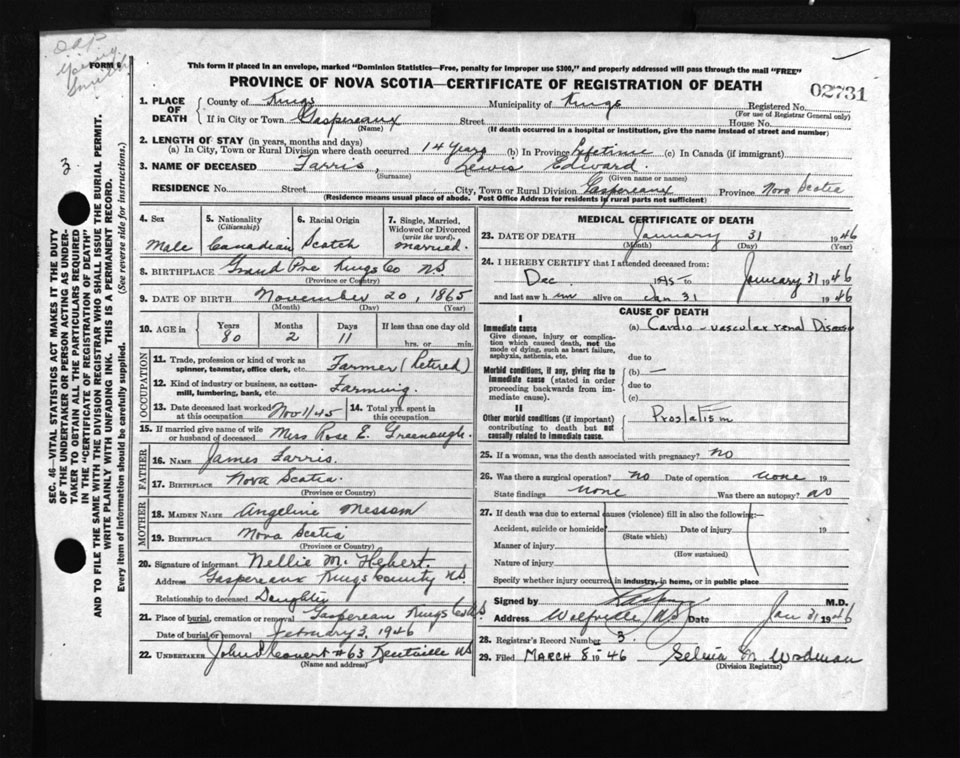 FORM 6
This form if placed in an envelope, marked "Dominion Statistics—Free, penalty for improper use $300," and properly addressed will pass through the mail "FREE"
PROVINCE OF NOVA SCOTIA—CERTIFICATE OF REGISTRATION OF DEATH
02731
1. PLACE OF DEATH
County of Kings Municipality of Kings Registered No.
(For use of Registrar General only)
If in City or Town Gaspereaux Street House No.
(Name) (If death occurred in a hospital or institution, give the name instead of street and number)
2. LENGTH OF STAY (in years, months and days)
(a) In City, Town or Rural Division where death occurred 14 years (b) In Province Lifetime (c) In Canada (if immigrant)
3. NAME OF DECEASED Farris, Lewis Edward
(Surname) (Given name or names)
RESIDENCE No. Street City, Town or Rural Division Gaspereaux Province Nova Scotia
(Residence means usual place of abode. Post Office Address for residents in rural parts not sufficient)
4. Sex
Male
5. Nationality
(Citizenship)
Canadian
6. Racial Origin
Scotch
7. Single, Married, Widowed or Divorced
(write the word)
married.
8. BIRTHPLACE Grand Pre Kings Co NS
(Province or Country)
9. DATE OF BIRTH November 20, 1865
(Month) (Day) (Year)
10. AGE in
Years Months Days If less than one day old
80 2 11 hrs. or min.
OCCUPATION
11. Trade, profession or kind of work as spinner, teamster, office clerk, etc. Farmer (Retired)
12. Kind of industry or business, as cotton-mill, lumbering, bank, etc. Farming.
13. Date deceased last worked at this occupation Nov 1/45
14. Total yrs. spent in this occupation
15. If married give name of wife or husband of deceased Miss Rose E. Greenough.
FATHER
16. NAME James Farris.
17. BIRTHPLACE Nova Scotia
(Province or Country)
MOTHER
18. MAIDEN NAME Angeline Messom
19. BIRTHPLACE Nova Scotia
(Province or Country)
20. Signature of informant Nellie M. Hebert.
Address Gaspereaux Kings County NS.
Relationship to deceased Daughter
21. Place of burial, cremation or removal Gaspereau Kings Co NS
Date of burial or removal February 3, 1946
22. UNDERTAKER #63 Kentville NS
(Name and address)
MEDICAL CERTIFICATE OF DEATH
23. DATE OF DEATH January 31 1946
(Month) (Day) (Year)
24. I HEREBY CERTIFY that I attended deceased from:
Dec 1945 to January 31 1946
and last saw him alive on Jan 31 1946
CAUSE OF DEATH
I
Immediate cause
Give disease, injury or complication which caused death, not the mode of dying, such as heart failure, asphyxia, asthenia, etc.
(a) Cardio-vascular renal Disease
due to
Morbid conditions, if any, giving rise to immediate cause (stated in order proceeding backwards from immediate cause).
(b) —
due to
(c)
II
Other morbid conditions (if important) contributing to death but not causally related to immediate cause.
Prostatism
25. If a woman, was the death associated with pregnancy? no
26. Was there a surgical operation? no Date of operation none 19
State findings none Was there an autopsy? no
27. If death was due to external causes (violence) fill in also the following:—
Accident, suicide or homicide Date of injury 19
(State which)
Manner of injury
(How sustained)
Nature of injury
Specify whether injury occurred in industry, in home, or in public place
Signed by M.D.
Address Wolfville NS Date Jan 31 1946
28. Registrar's Record Number 3.
29. Filed MARCH 8 1946 M. Woodman
(Division Registrar)
SEC. 46—VITAL STATISTICS ACT MAKES IT THE DUTY
OF THE UNDERTAKER OR PERSON ACTING AS UNDER-
TAKER TO OBTAIN ALL THE PARTICULARS REQUIRED
IN THE "CERTIFICATE OF REGISTRATION OF DEATH"
AND TO FILE THE SAME WITH THE DIVISION REGISTRAR WHO SHALL ISSUE THE BURIAL PERMIT.
WRITE PLAINLY WITH UNFADING INK. THIS IS A PERMANENT RECORD.
Every item of information should be carefully supplied. (See reverse side for instructions.)
3